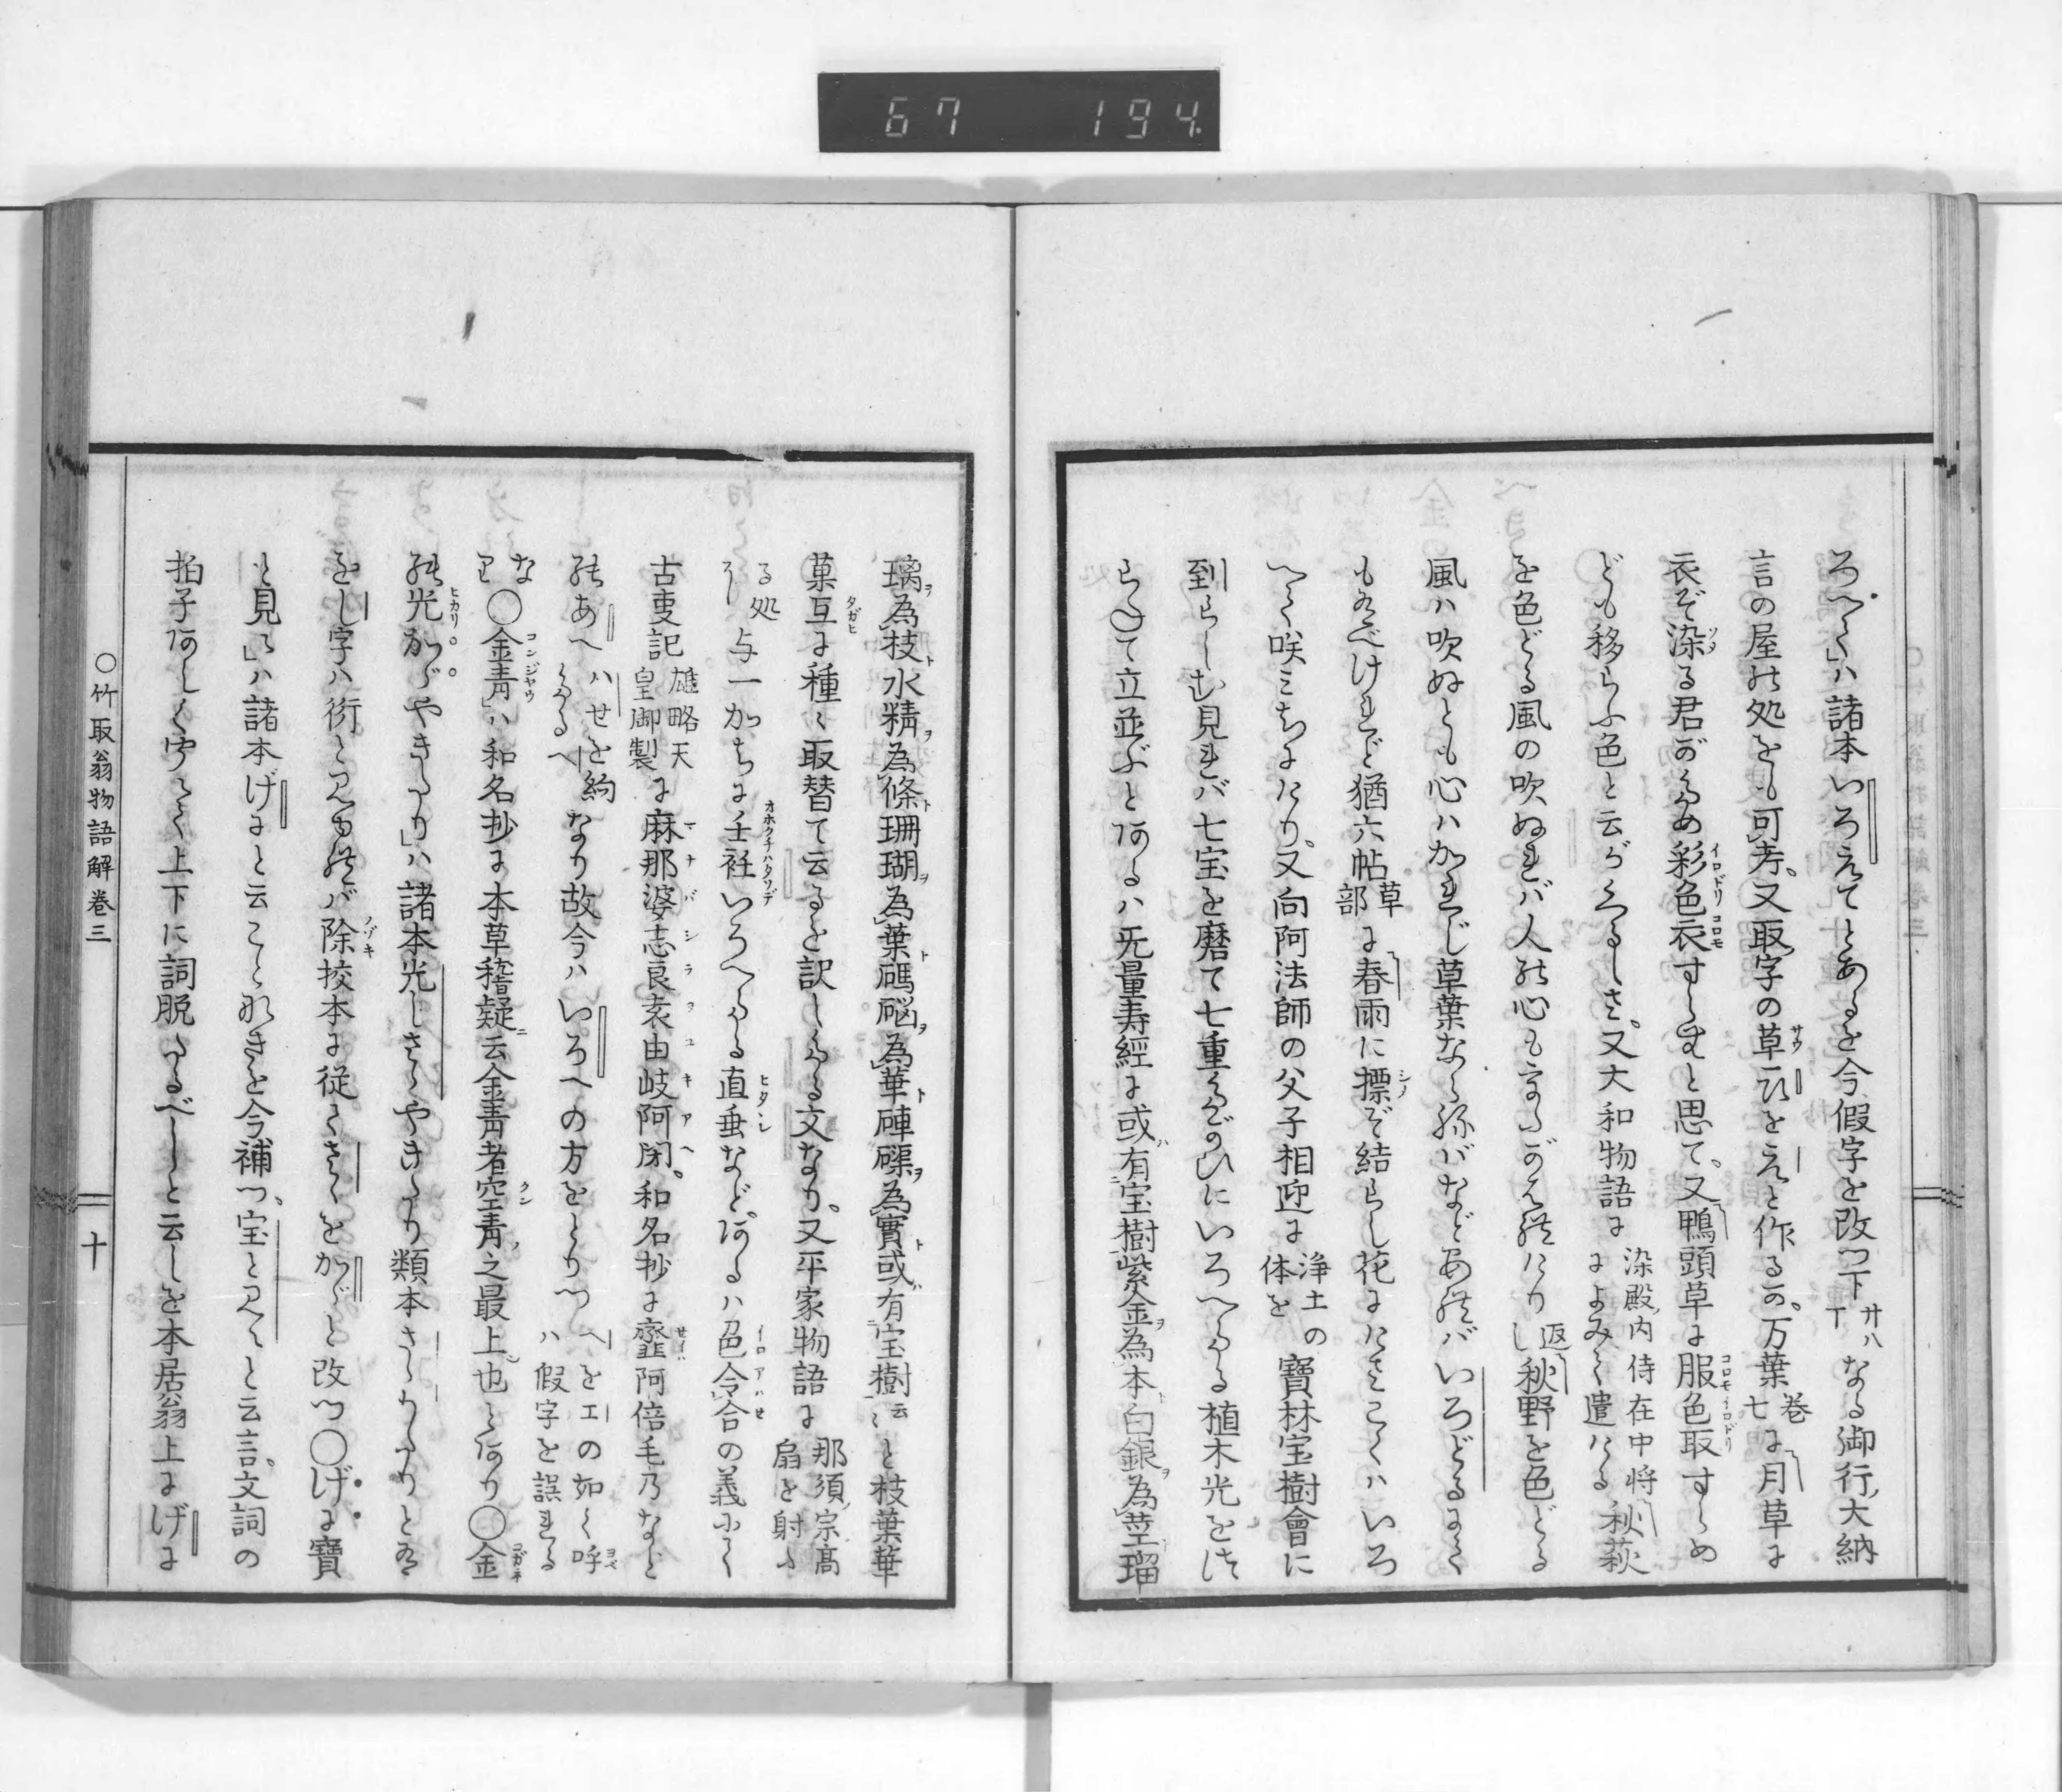 67 194
ろへて」ハ諸本いろえてとあるを今假字を改つ下廿八丁なる御行,大納
言の屋の処をも可考。又取字の草ひをえと作るか。万葉巻七に月草に
衣ぞ染る君がため彩色衣すらむと思て。又鴨頭草に服色取すらめ
ども移らふ色と云がくるしさ。又大和物語に染殿,内侍在中将によみて遣ける秋萩
を色どる風の吹ぬれバ人の心もうたがはれけり返し秋野を色どる
風ハ吹ぬとも心ハかれじ草葉ならねバなどあれバいろどるにて
もあべけれど猶六帖草部に春雨に標ぞ結らし花にたさこくハいろ
へて咲ミちにけり。又向阿法師の父子相迎に浄土の体を寶林宝樹會に
到らしむ見れバ七宝を磨て七重ながひにいろへたる植木光をはな
らへて立並ぶとあるハ无量寿經に或有宝樹紫金為本白銀為莖瑠
璃為枝水精為條珊瑚為葉碼碯為華硨磲為實或有宝樹云〻と枝葉華
菓互に種〻取替て云るを訳したる文なり。又平家物語に那須,宗髙扇を射ふ
る処に与一かちに壬衽いろへたる直垂など。あるハ色令合の義にて
古事記雄略天皇御製に麻那婆志良袁由岐阿閇。和名抄に韲阿倍毛乃など
のあへハせを約たるへなり故今ハいろへの方をとりつへをエの如く呼ハ假字を誤れる
なり〇金青」ハ和名抄に本草稽疑云金青者空青之最上也とあり〇金
の光かゞやきたり」ハ諸本光しさゝやきたり類本さしりたりとある
をし字ハ衍と見ゆれバ除挍本に従てさゝをかゞと改つ〇げに寶
と見え」ハ諸本げにと云ことなきを今補つ。宝と見えと云言。文詞の
拍子あしく安く上下に詞脱たるべしと云しを本居翁上にげに
〇竹取翁物語解巻三
十